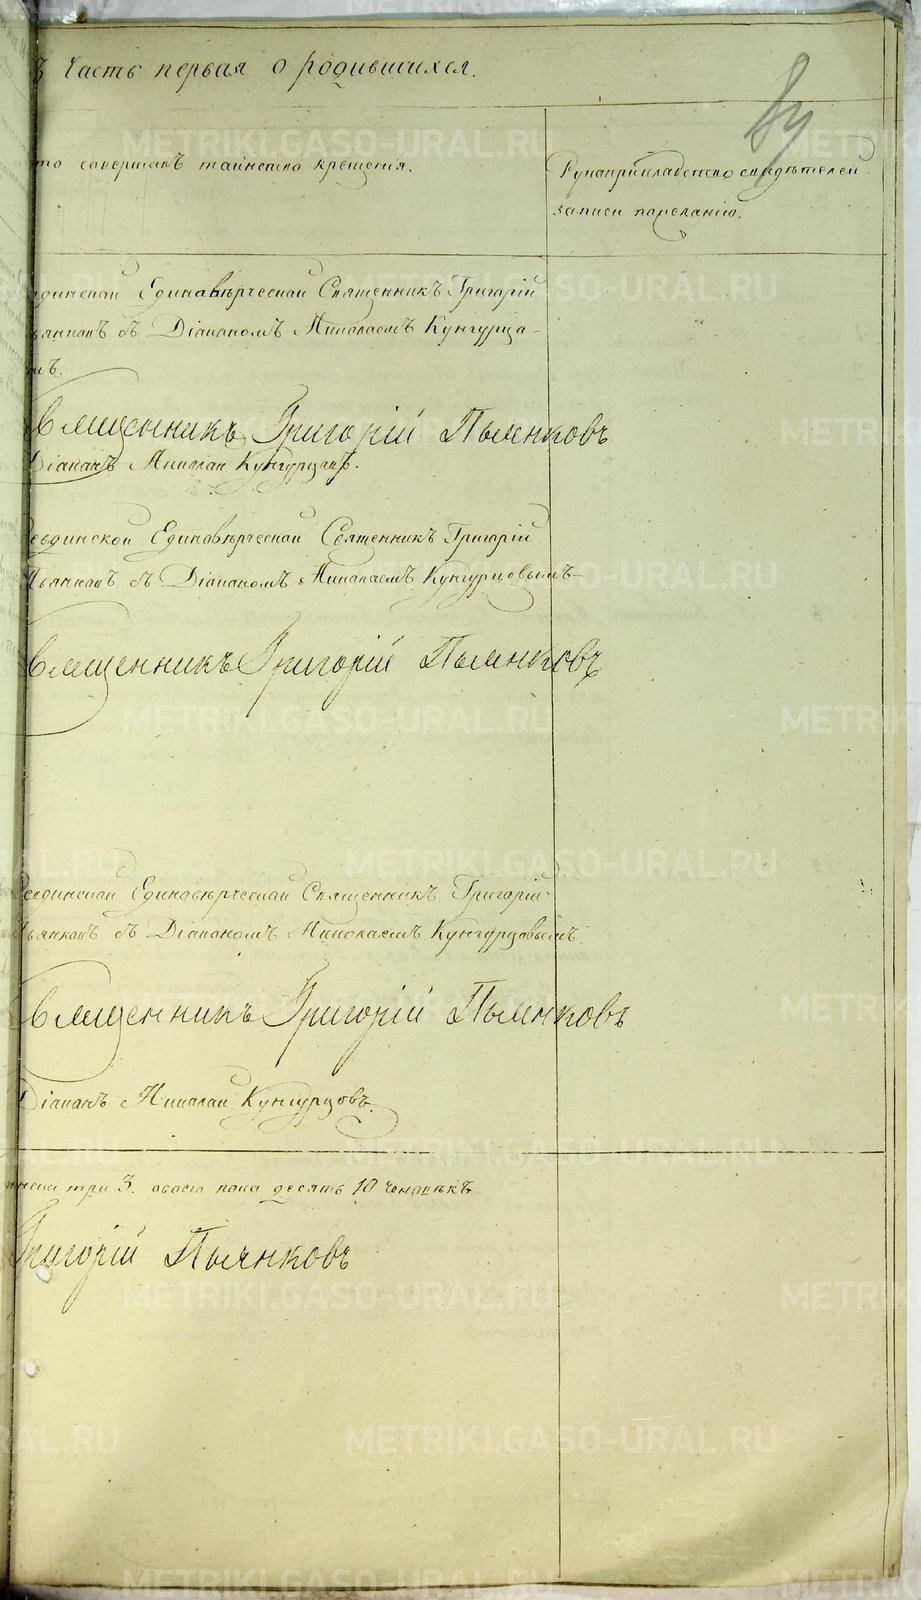 Часть первая о родившихся.
то совершалъ таинство крещения.
Рукоприкладство свидѣтелей
записи пожеланію.
Единовѣрческой Священникъ Григорій
съ Діакономъ Николаемъ Кунгурцо-
мъ.
Священникъ Григорій Пьянковъ
Діаконъ Николай Кунгурцовъ.
Единовѣрческой Священникъ Григорій
Пьянковъ съ Діакономъ Николаемъ Кунгурцовымъ
Священникъ Григорій Пьянковъ
Единовѣрческой Священникъ Григорій
Пьянковъ съ Діакономъ Николаемъ Кунгурцовымъ.
Священникъ Григорій Пьянковъ
Діаконъ Николай Кунгурцовъ.
три 3. обоего пола десять 10 человѣкъ
Григорій Пьянковъ
METRIKI.GASO-URAL.RU